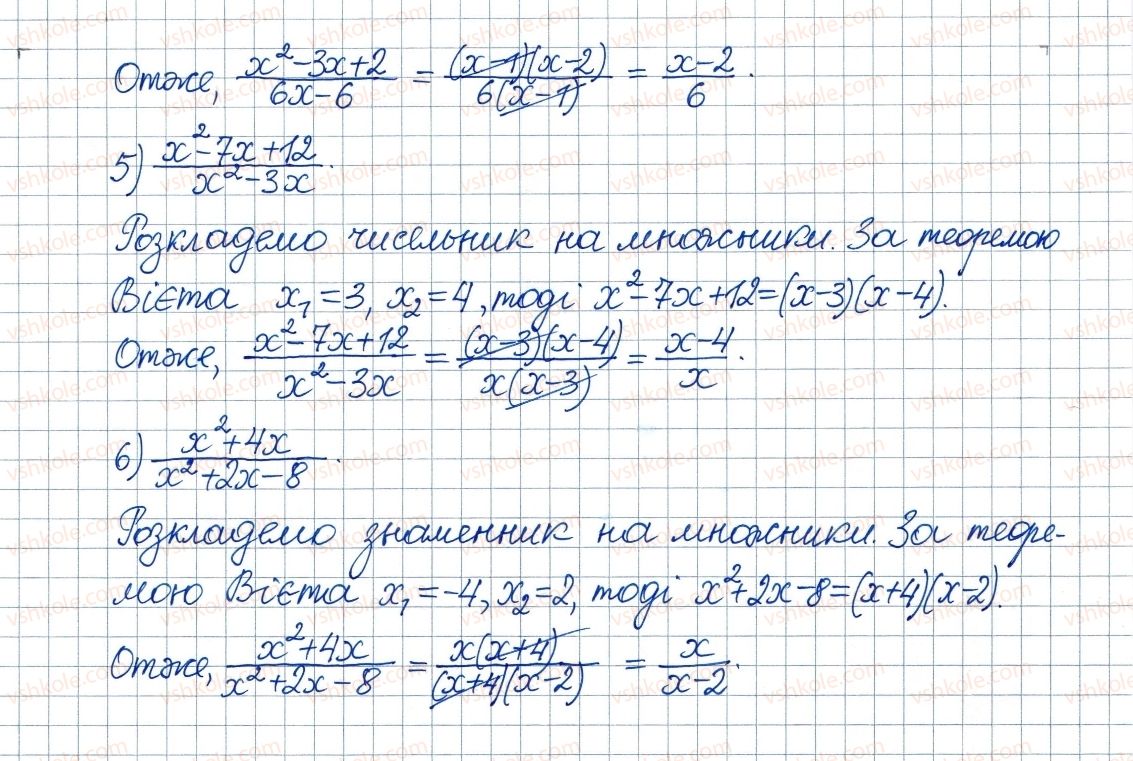 Отже, (x²-3x+2)/(6x-6) = ((x-1)(x-2))/(6(x-1)) = (x-2)/6.
5) (x²-7x+12)/(x²-3x).
Розкладемо чисельник на множники. За теоремою
Вієта x₁=3, x₂=4, тоді x²-7x+12=(x-3)(x-4).
Отже, (x²-7x+12)/(x²-3x) = ((x-3)(x-4))/(x(x-3)) = (x-4)/x.
6) (x²+4x)/(x²+2x-8).
Розкладемо знаменник на множники. За теоре-
мою Вієта x₁=-4, x₂=2, тоді x²+2x-8=(x+4)(x-2).
Отже, (x²+4x)/(x²+2x-8) = (x(x+4))/((x+4)(x-2)) = x/(x-2).
vshkole.com